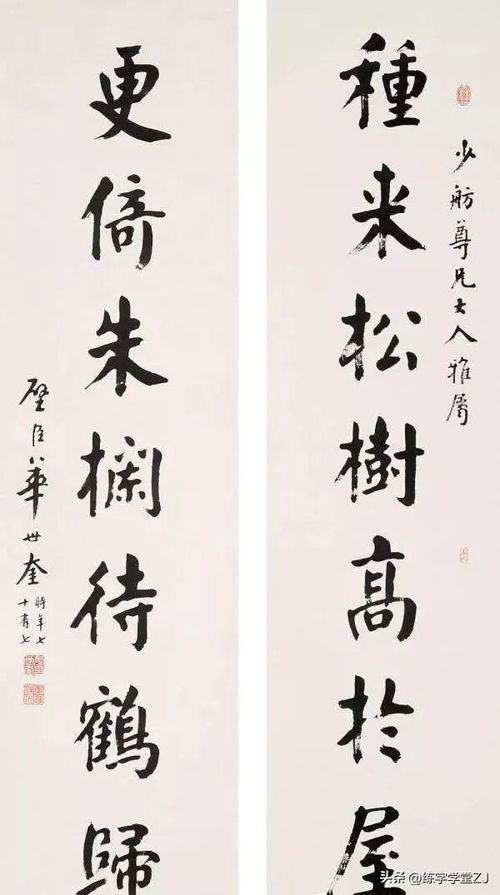 少舫尊兄大人雅属
種来松樹髙於屋
更倚朱欄待鶴歸
璧臣華世奎
時年七
十有七
头条@练字学堂ZJ